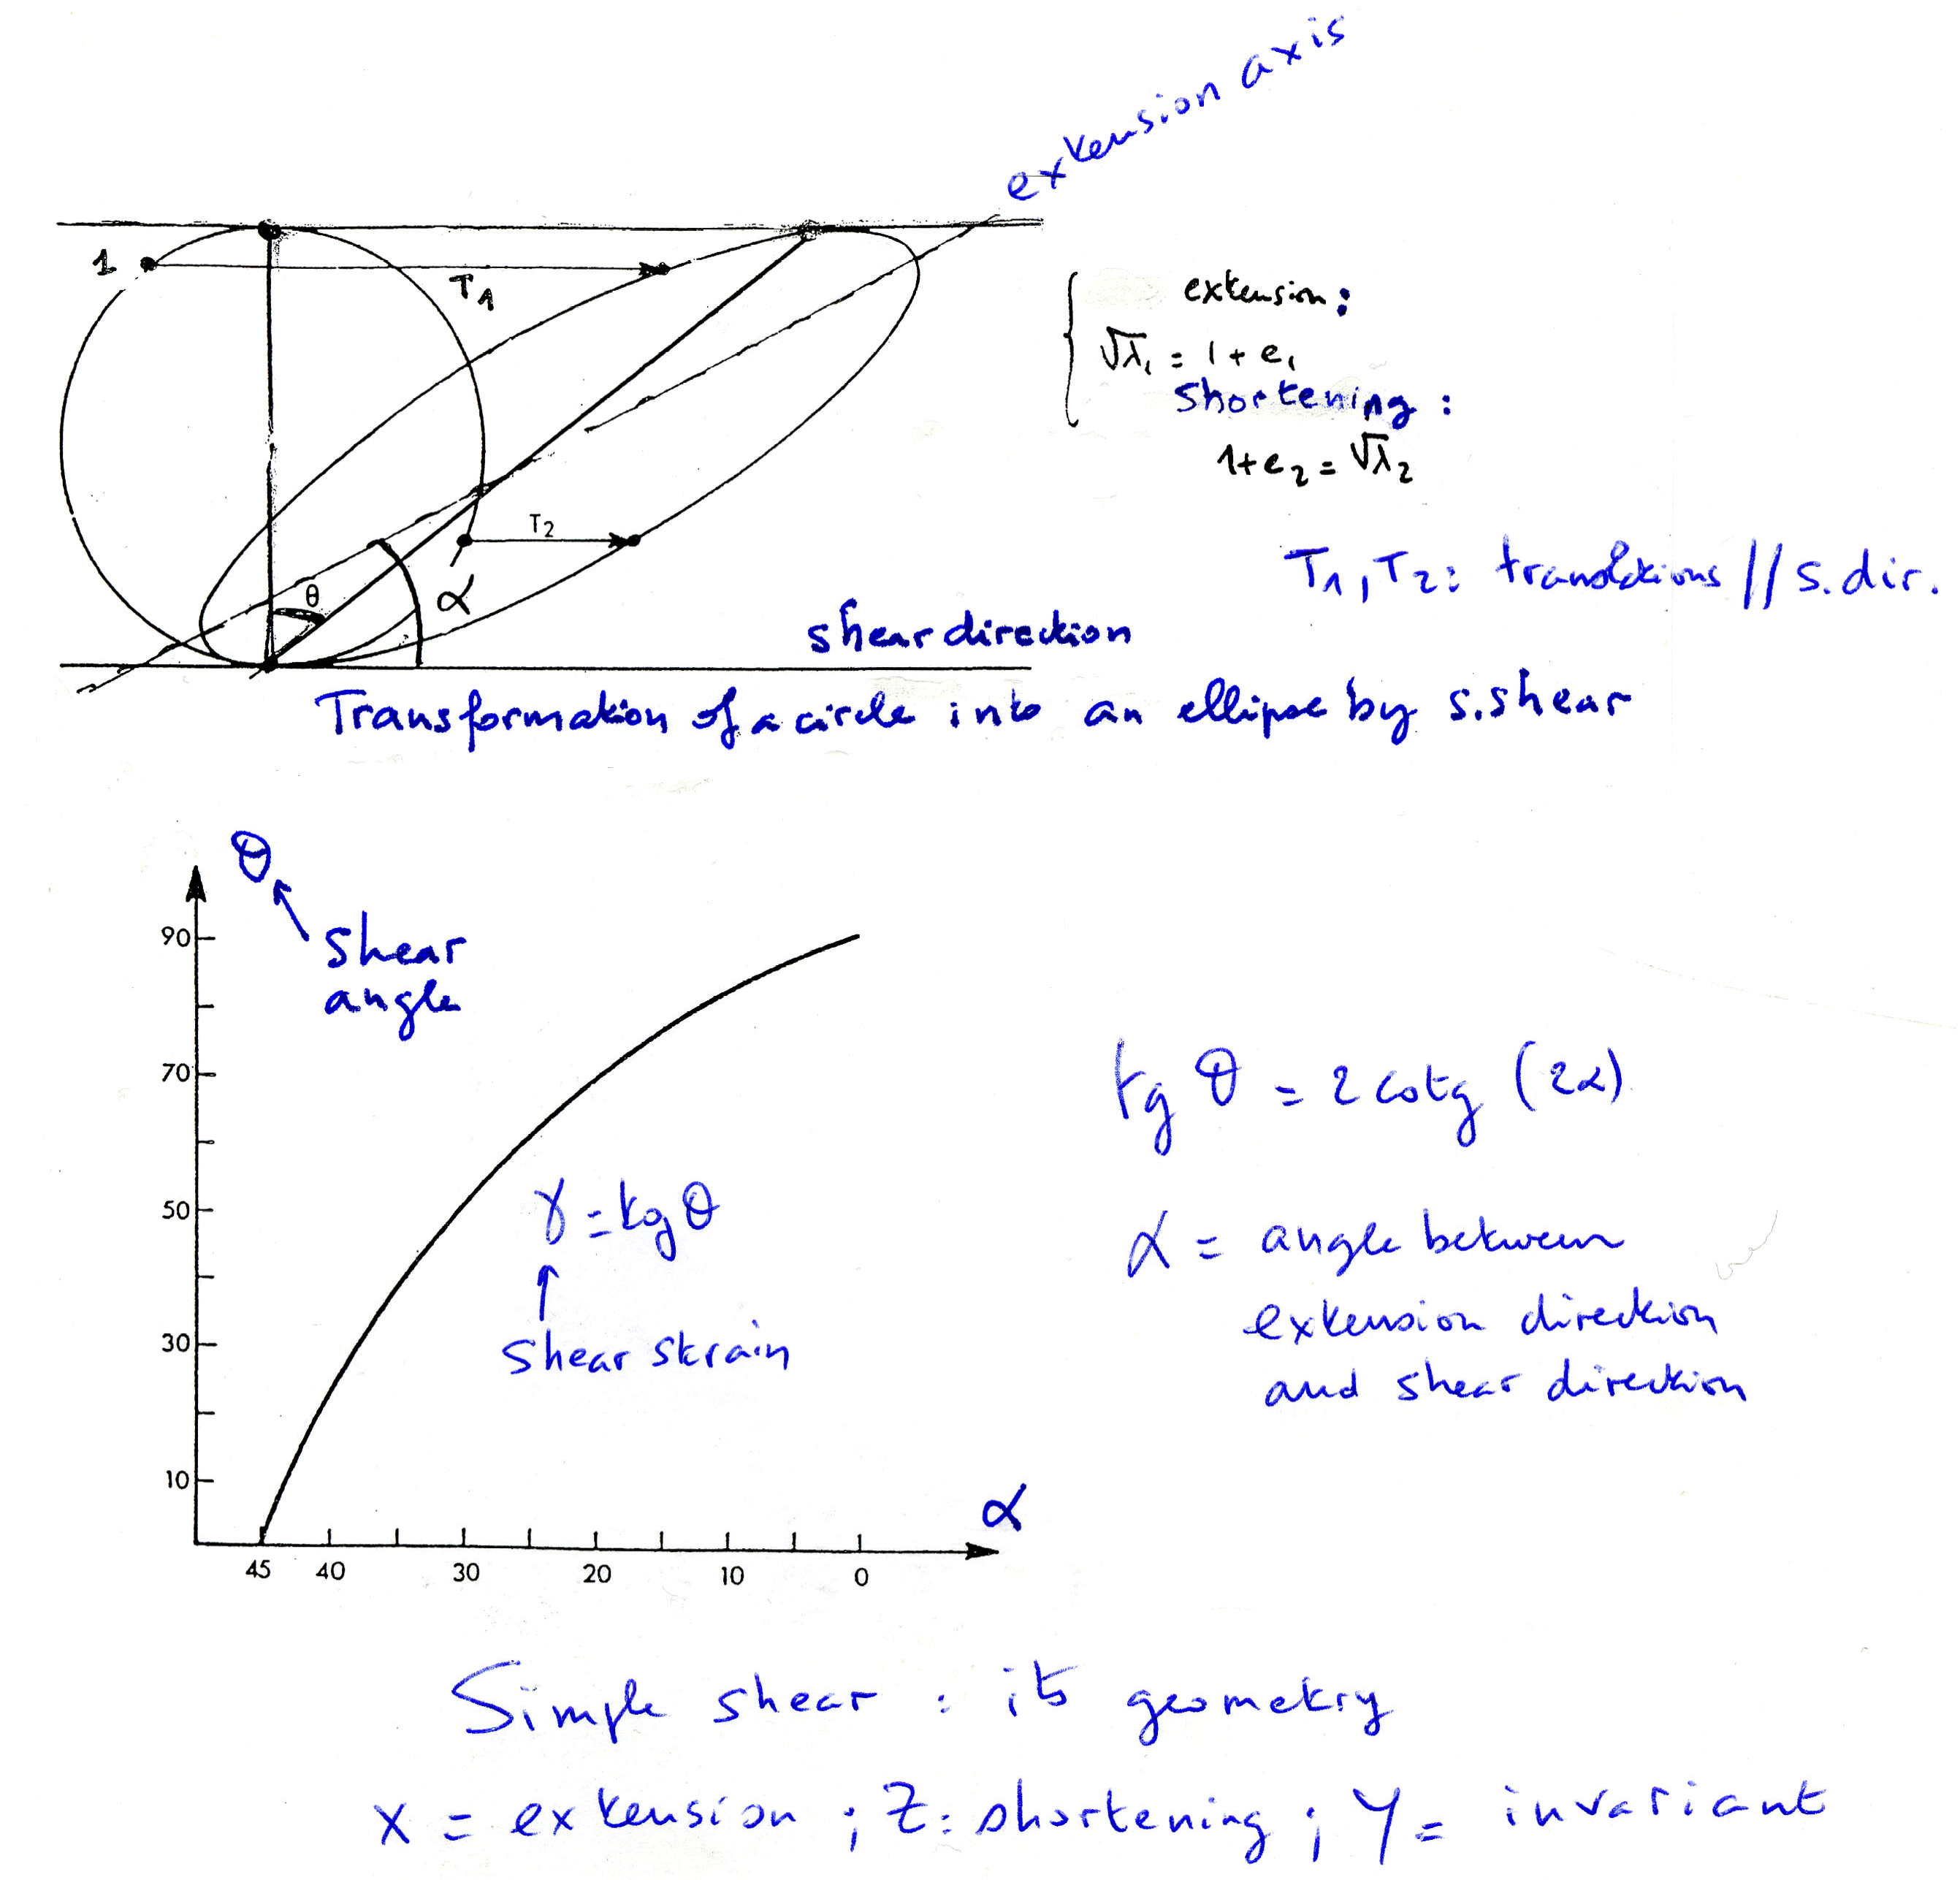 extension axis
1
T1
extension:
√λ1 = 1 + e1
shortening:
1+e2 = √λ2
T2
T1, T2: translations // s.dir.
θ
α
shear direction
Transformation of a circle into an ellipse by s.shear
θ
shear
angle
90
70
50
30
10
tg θ = 2 cotg (2α)
γ = tg θ
shear strain
α = angle between
extension direction
and shear direction
α
45 40 30 20 10 0
Simple shear : its geometry
X = extension ; Z: shortening ; Y = invariant